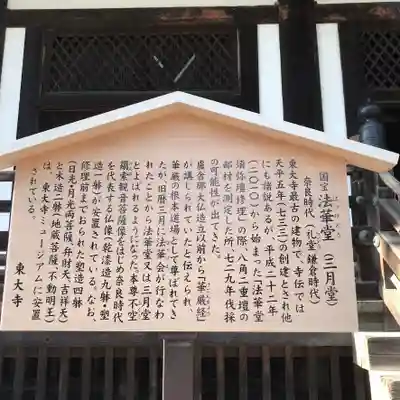 国宝 法華堂（三月堂）
奈良時代（礼堂・鎌倉時代）
東大寺最古の建物で、寺伝では
天平五年（七三三）の創建とされ他
に諸説あるが、平成二十二年
（二〇一〇）から始まった「法華堂
須弥壇修理」の際、八角二重壇の
部材を測定した所、七二九年伐採
の可能性が出てきた。
盧舎那大仏造立以前から「華厳経」
が講じられていたと伝えられ、
華厳の根本道場として尊ばれてき
たが、旧暦三月に法華会が行なわ
れたことから法華堂又は三月堂
とよばれるようになった。本尊不空
羂索観音菩薩像をはじめ奈良時代
を代表する仏像（乾漆造九躰・塑
造一躰）が安置されている。なお、
修理前までおられた塑造四躰
（日光・月光両菩薩、弁財天、吉祥天）
と木造二躰（地蔵菩薩、不動明王）
は、東大寺ミュージアムに安置
されている。
東大寺